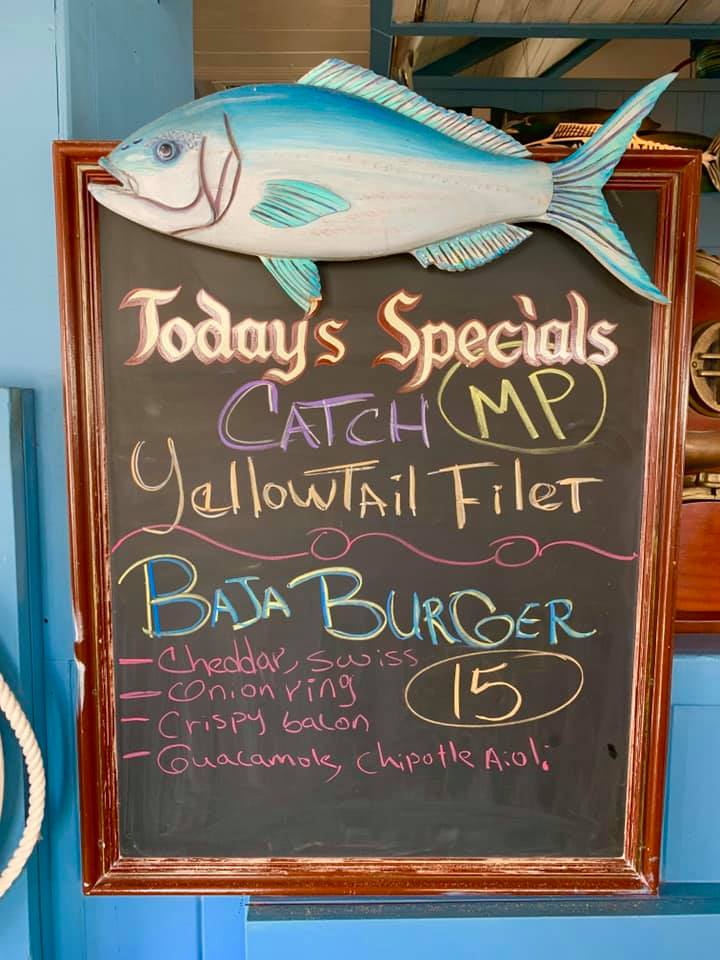 Today's Specials
CATCH MP
YellowTail Filet
BAJA BURGER
- Cheddar, swiss
- Onion ring 15
- Crispy bacon
- Guacamole, Chipotle Aioli